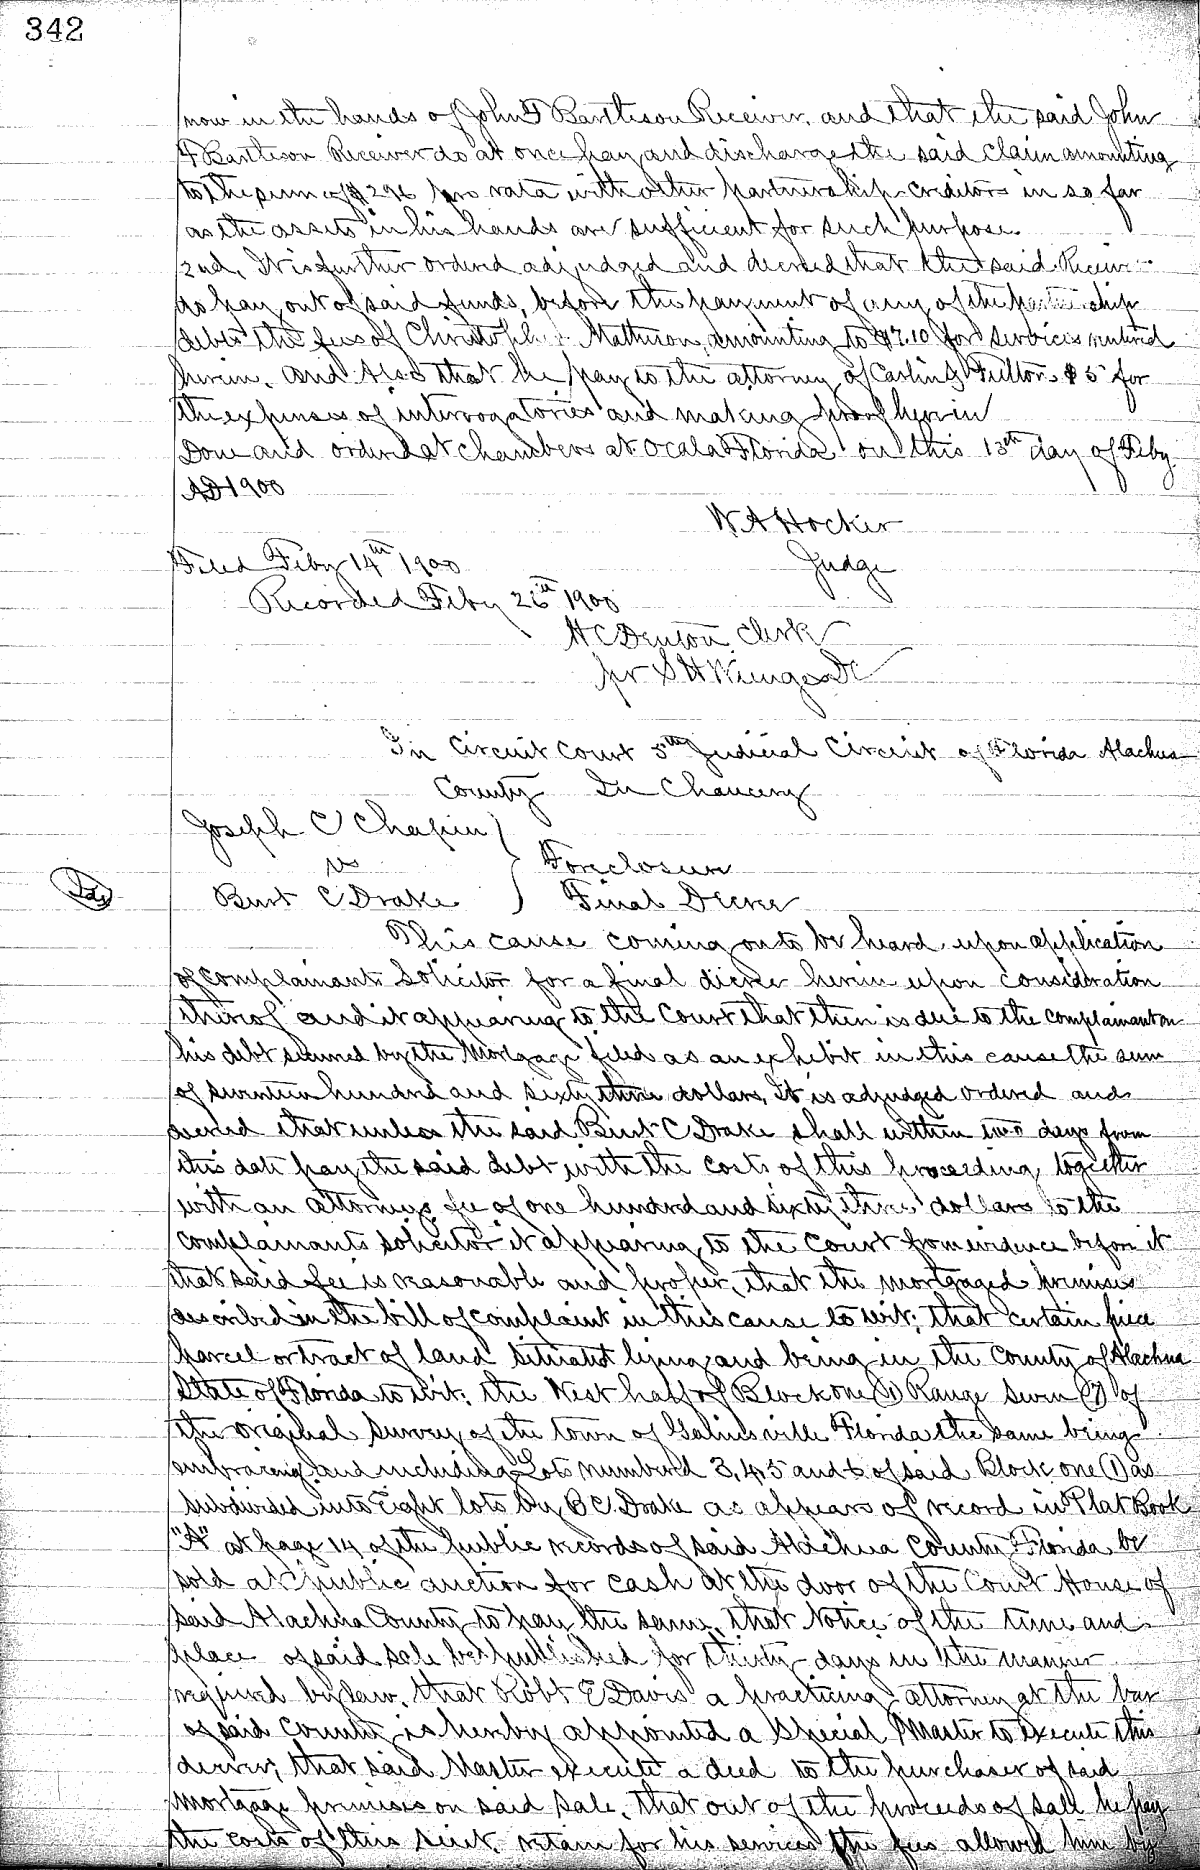 342
now in the hands of John F Bartleson Receiver. and that the said John
F Bartleson Receiver do at once pay and discharge the said claim amounting
to the sum of $296 pro rata with other partnership creditors in so far
as the assets in his hands are sufficient for such purpose.
2nd, It is further ordered adjudged and decreed that the said Receiver
do pay out of said funds, before the payment of any of the partnership
debts the fees of Christopher Matheson, amounting to $7.10 for services rendered
herein. And Also that he pay to the attorney of Carlin & Fulton $5 for
the expenses of interrogatories and making proof herein
Done and ordered at Chambers at Ocala Florida on this 13th day of Feby
AD 1900
W A Hocker
Judge
Filed Feby 14th 1900
Recorded Feby 26th 1900
H C Denton Clerk
pr S H Wienges DC
In Circuit Court 5th Judicial Circuit of Florida Alachua
County In Chancery
Joseph C Chapin
vs
Foreclosure
Burt C Drake
Final Decree
This cause coming on to be heard upon application
of complainants Solicitor for a final decree herein upon consideration
thereof and it appearing to the Court that there is due to the complainant on
his debt secured by the Mortgage filed as an exhibit in this cause the sum
of seventeen hundred and sixty three dollars, It is adjudged ordered and
decreed that unless the said Burt C Drake shall within two days from
this date pay the said debt with the costs of this proceeding, together
with an attorneys fee of one hundred and sixty three dollars to the
complainants solicitor it appearing to the Court from evidence before it
that said fee is reasonable and proper, that the mortgaged premises
described in the bill of complaint in this cause to wit; that certain piece
parcel or tract of land situated lying and being in the County of Alachua
State of Florida to wit; the West half of Block one (1) Range seven (7) of
the original Survey of the town of Gainesville Florida the same being
embracing and including Lots numbered 3, 4, 5 and 6 of said Block one (1) as
subdivided into Eight lots by B C Drake as appears of record in Plat Book
"A" at page 14 of the public records of said Alachua County Florida be
sold at public auction for cash at the door of the Court House of
said Alachua County to pay the same, that Notice of the time and
place of said sale be published for thirty days in the manner
required by law, that Robt E Davis a practicing attorney at the bar
of said County is hereby appointed a Special Master to execute this
decree; that said Master execute a deed to the purchaser of said
mortgage premises on said sale, that out of the proceeds of sale he pay
the costs of this suit, retain for his services the fees allowed him by